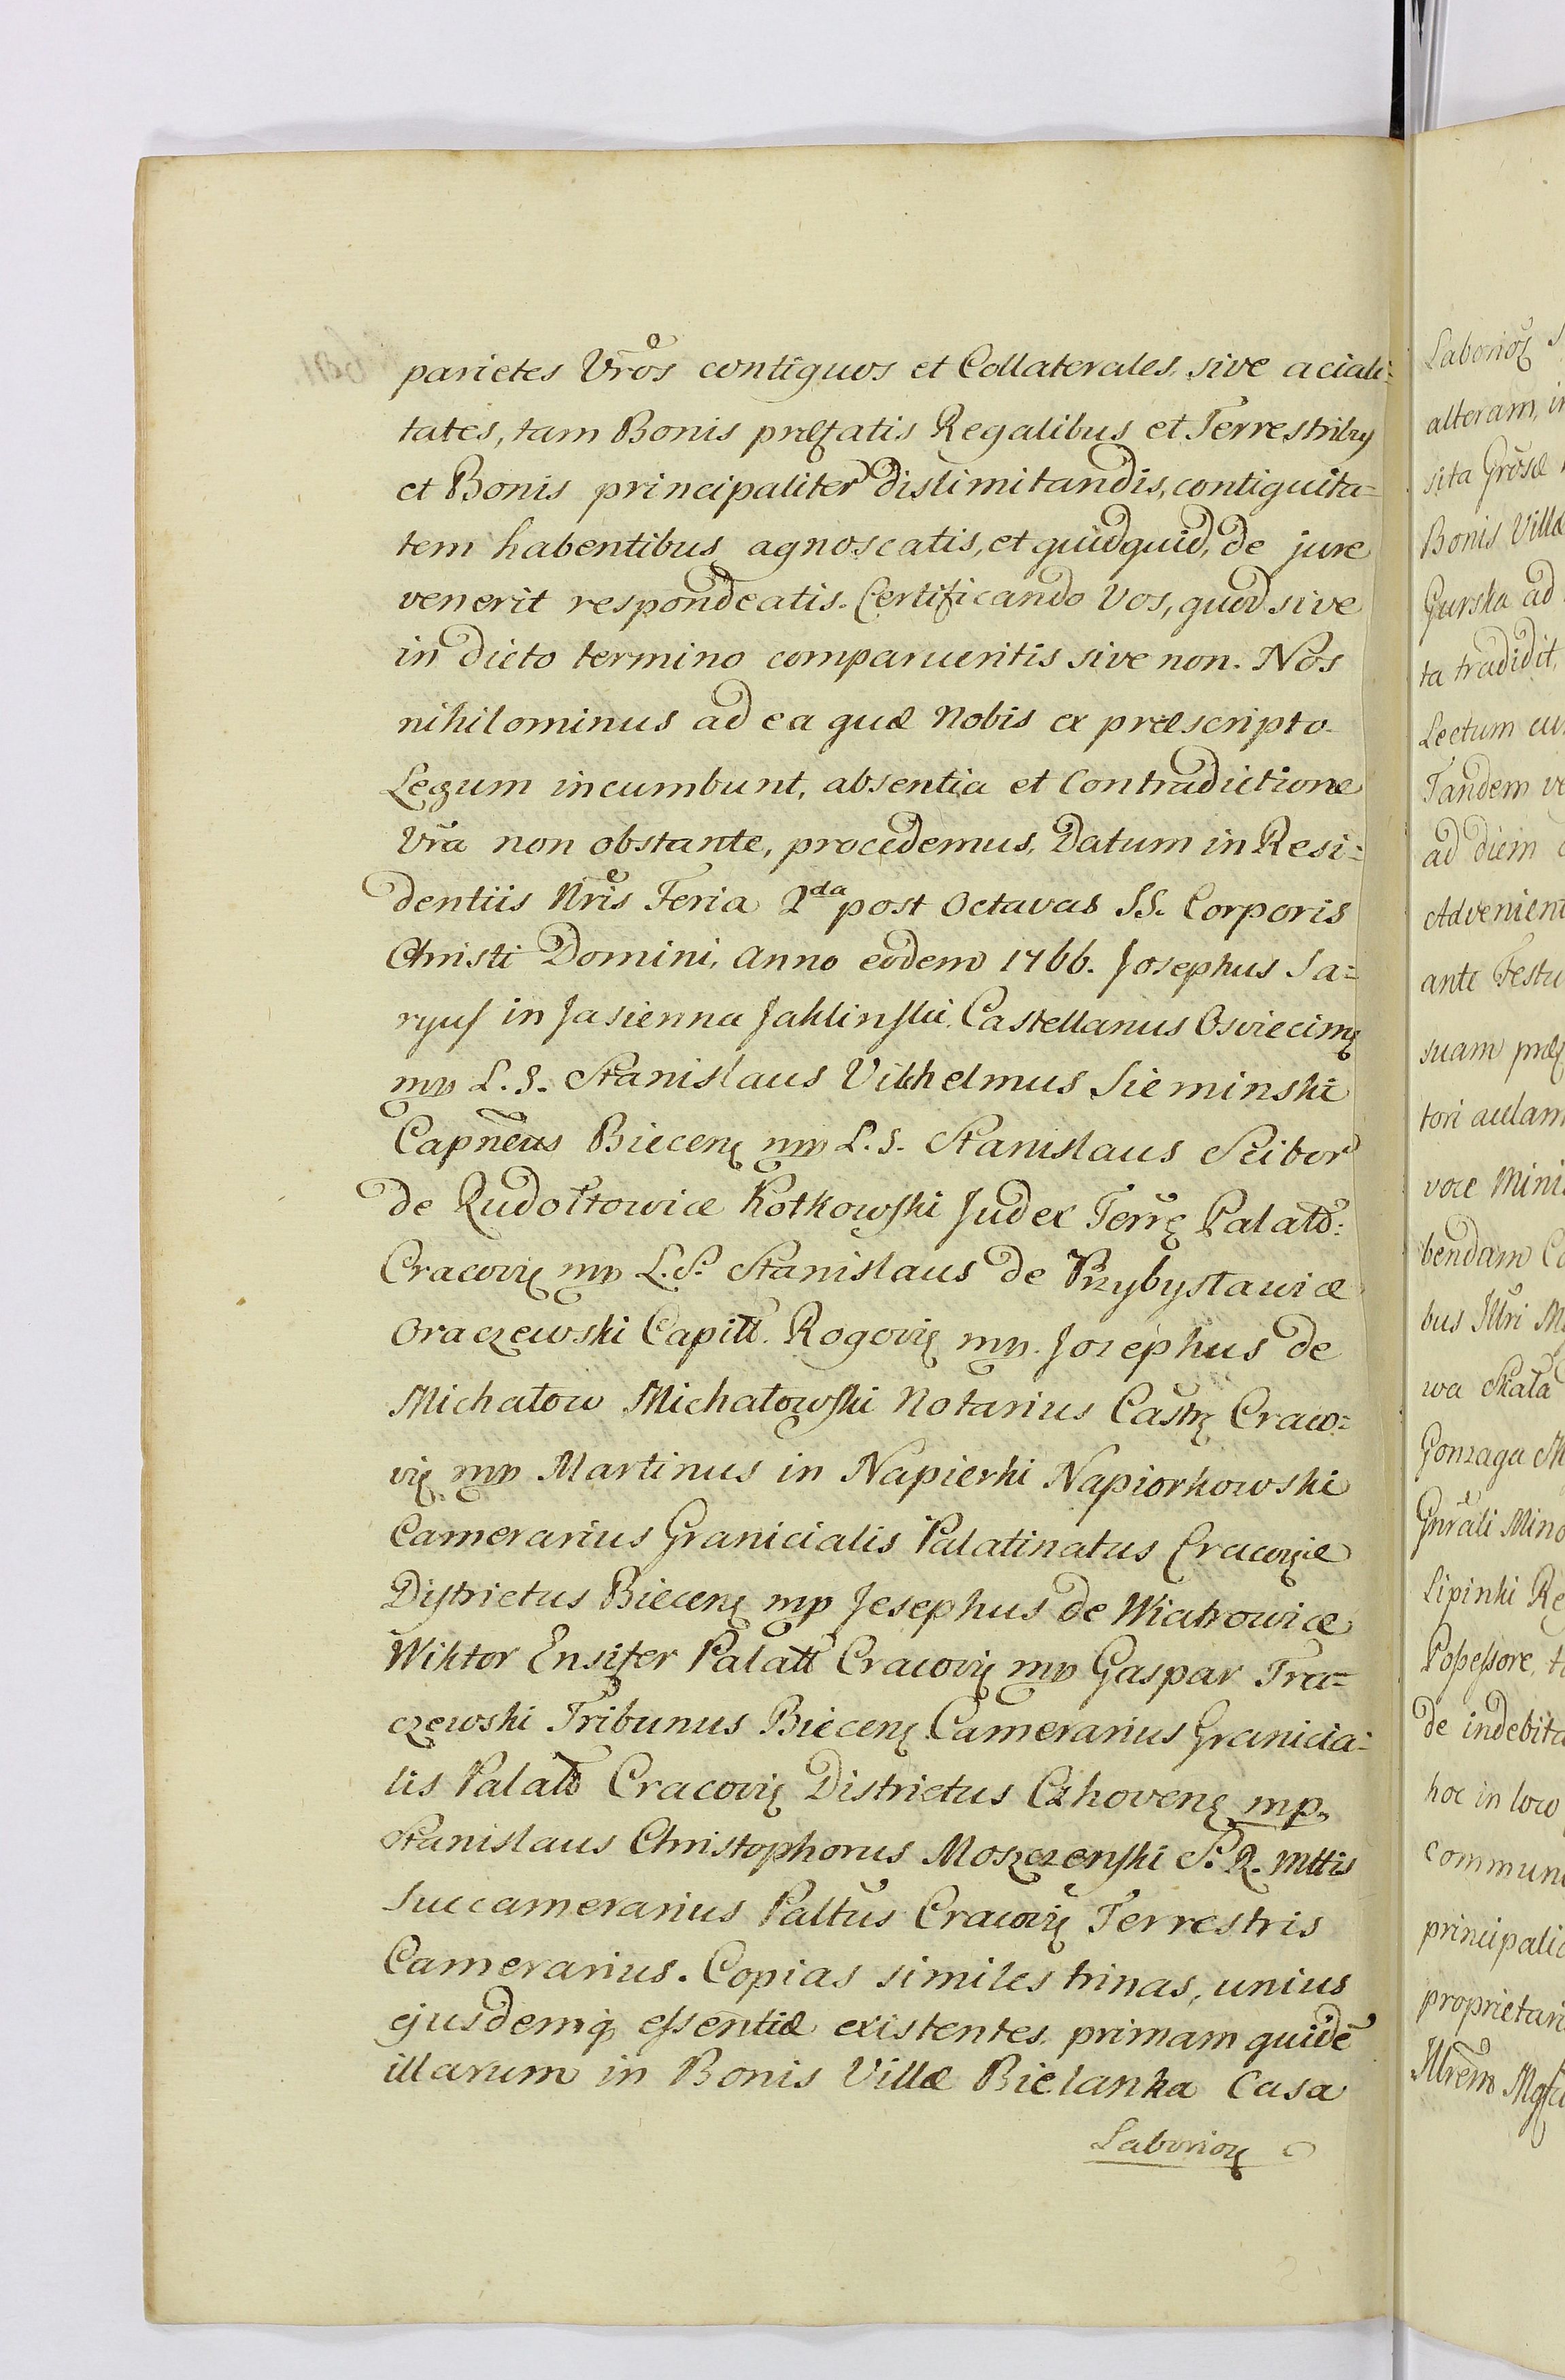 parietes Vrõs contiguos et Collaterales, sive aciali=
tates, tam Bonis præfatis Regalibus et Terrestribus
et Bonis principaliter dislimitandis, contiguita=
tem habentibus agnoscatis, et quidquid, de jure
venerit respondeatis. Certificando Vos, quod sive
in dicto termino comparueritis sive non. Nos
nihilominus ad ea quæ nobis ex præscripto
Legum incumbunt, absentia et Contradictione
Vrã non obstante, procedemus. Datum in Resi=
dentiis Nrĩs Feria 2da post Octavas SS. Corporis
Christi Domini, Anno eodem 1766. Josephus Sa=
ryusz in Jasienna Jaklinski, Castellanus Osviecimę
mp L. S. Stanislaus Vilhelmus Sieminski
Capñeus Biecenę mp L. S. Stanislaus Scibor
de Rudołtowice Kotkowski Judex Terrę Palatt:
Cracovię mp L. S. Stanislaus de Przybysławice
Oraczewski Capitt. Rogovię mp. Josephus de
Michałow Michałowski Notarius Castrę Craco=
vię mp Martinus in Napierki Napiorkowski
Camerarius Granicialis Palatinatus Cracovię
Districtus Biecenę mp Jesephus de Wiatrowice
Wiktor Ensifer Palatt Cracovię mp Gaspar Tra=
czewski Tribunus Biecenę Camerarius Granicia=
lis Palatt Cracovię Districtus Czhovenę mp.
Stanislaus Christophorus Moszczenski S. R. Mttis
Succamerarius Paltus Cracovię Terrestris
Camerarius. Copias similes trinas, unius
ejusdemq essentiæ existentes, primam quidē
illarum in Bonis Villæ Bielanka Casa
Laborioę
Laborioę
alteram, in
sita Grõsæ
Bonis Villæ
Gurska ad
ta tradidit,
Lectum cu
Tandem ve
ad diem
Advenient
ante Festu
suam præf
tori aulam
voce Minis
bendam Co
bus Illri M
wa Skała
Gonzaga
Gnrãli Mino
Lipinki Re
Possessore, t
de indebita
hoc in loco
communi
principalio
proprietari
Illrem Mgfc